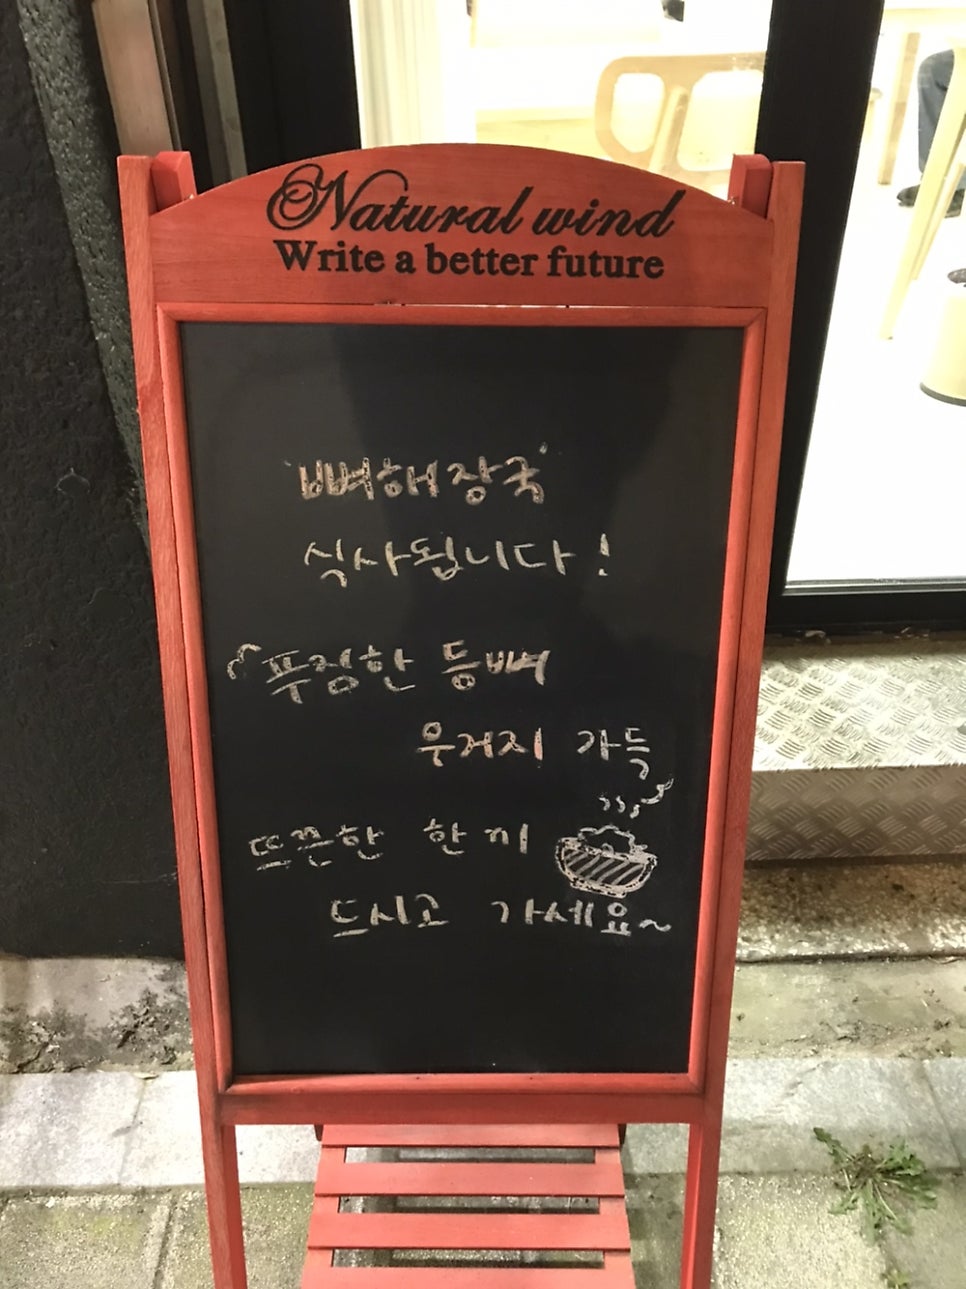 Natural wind
Write a better future
'뼈해장국'
식사됩니다!
푸짐한 등뼈
우거지 가득
뜨끈한 한끼
드시고 가세요~